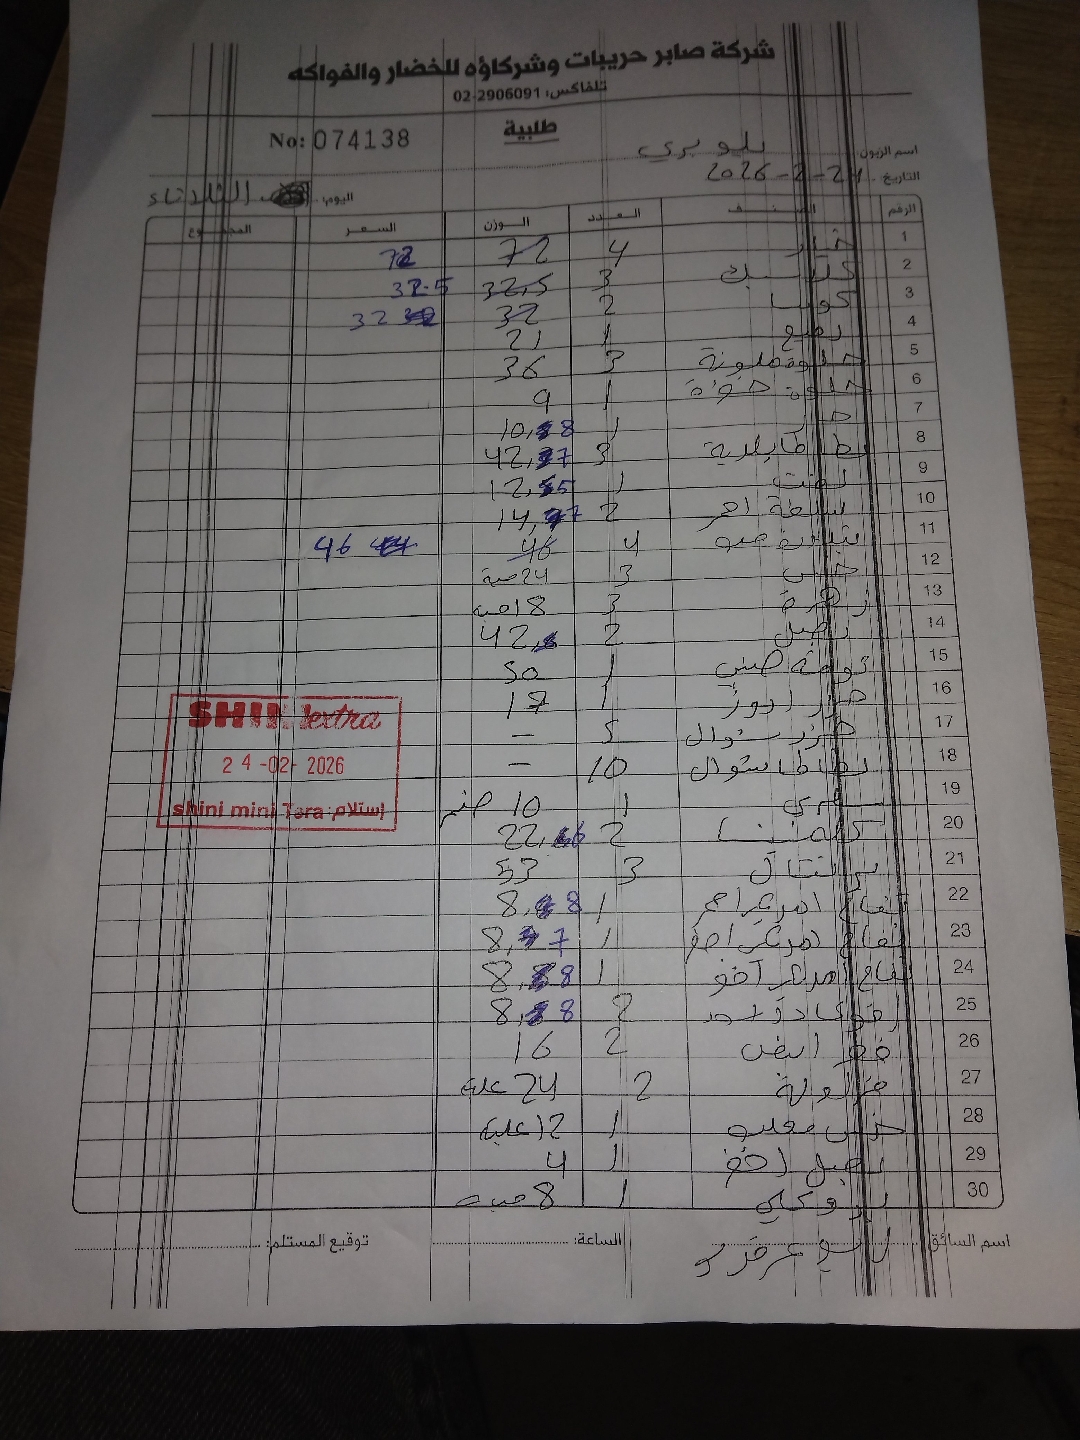 شركة صابر حريبات وشركاؤه للخضار والفواكه
تلفاكس: 02-2906091
No: 074138
طلبية
اسم الزبون: بلو بري
التاريخ: 24-2-2026
اليوم: الثلاثاء
الرقم الصنف العدد الوزن السعر المجموع
1 خيار 4 72 72
2 كلاسيك 3 32,5 32.5
3 كوسا 2 32 32
4 1 21
5 حلوة ملونة 3 36
6 حلوة 1 9
7 حار 1 10,8
8 بطاطا بلدية 3 42,7
9 لفت 1 12,5
10 احمر 2 14,7
11 بندورة 4 46 46
12 خس 3 24 حبة
13 زهرة 3 18 حبة
14 بصل 2 42,8
15 ثومة 1 50
16 جزر 1 17
17 جزر ستوال 5 –
18 بطاطا ستوال 10 –
19 1 10
20 كلمنتينا 2 22,6
21 برتقال 3 53
22 تفاح احمر 1 8,8
23 تفاح اصفر 1 8,7
24 تفاح اخضر 1 8,8
25 افوكادو 2 8,8
26 فطر ابيض 2 16
27 فراولة 2 24 علبة
28 خس 1 12 علبة
29 بصل اخضر 1 4
30 بروكلي 1 8 حبة
SHINI extra
24-02-2026
shini mini Tera إستلام:
اسم السائق:
الساعة:
توقيع المستلم: